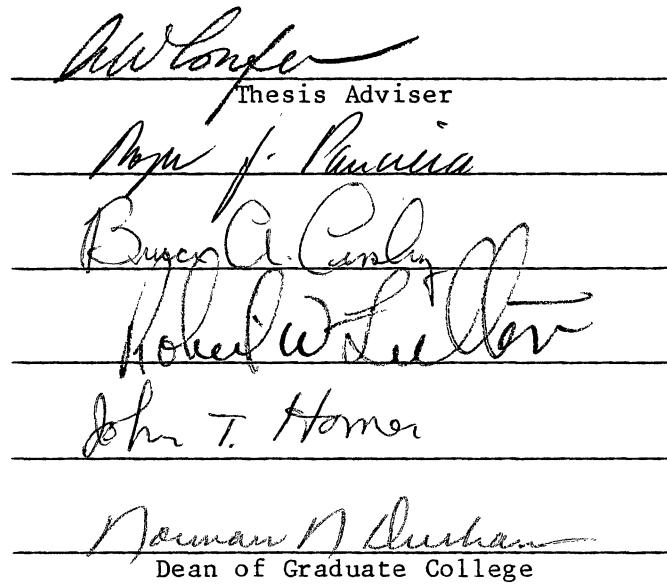 AW Confer
Thesis Adviser
Roger J. Panciera
Bruce A.
Robert W Fulton
John T. Homer
Norman N Durham
Dean of Graduate College